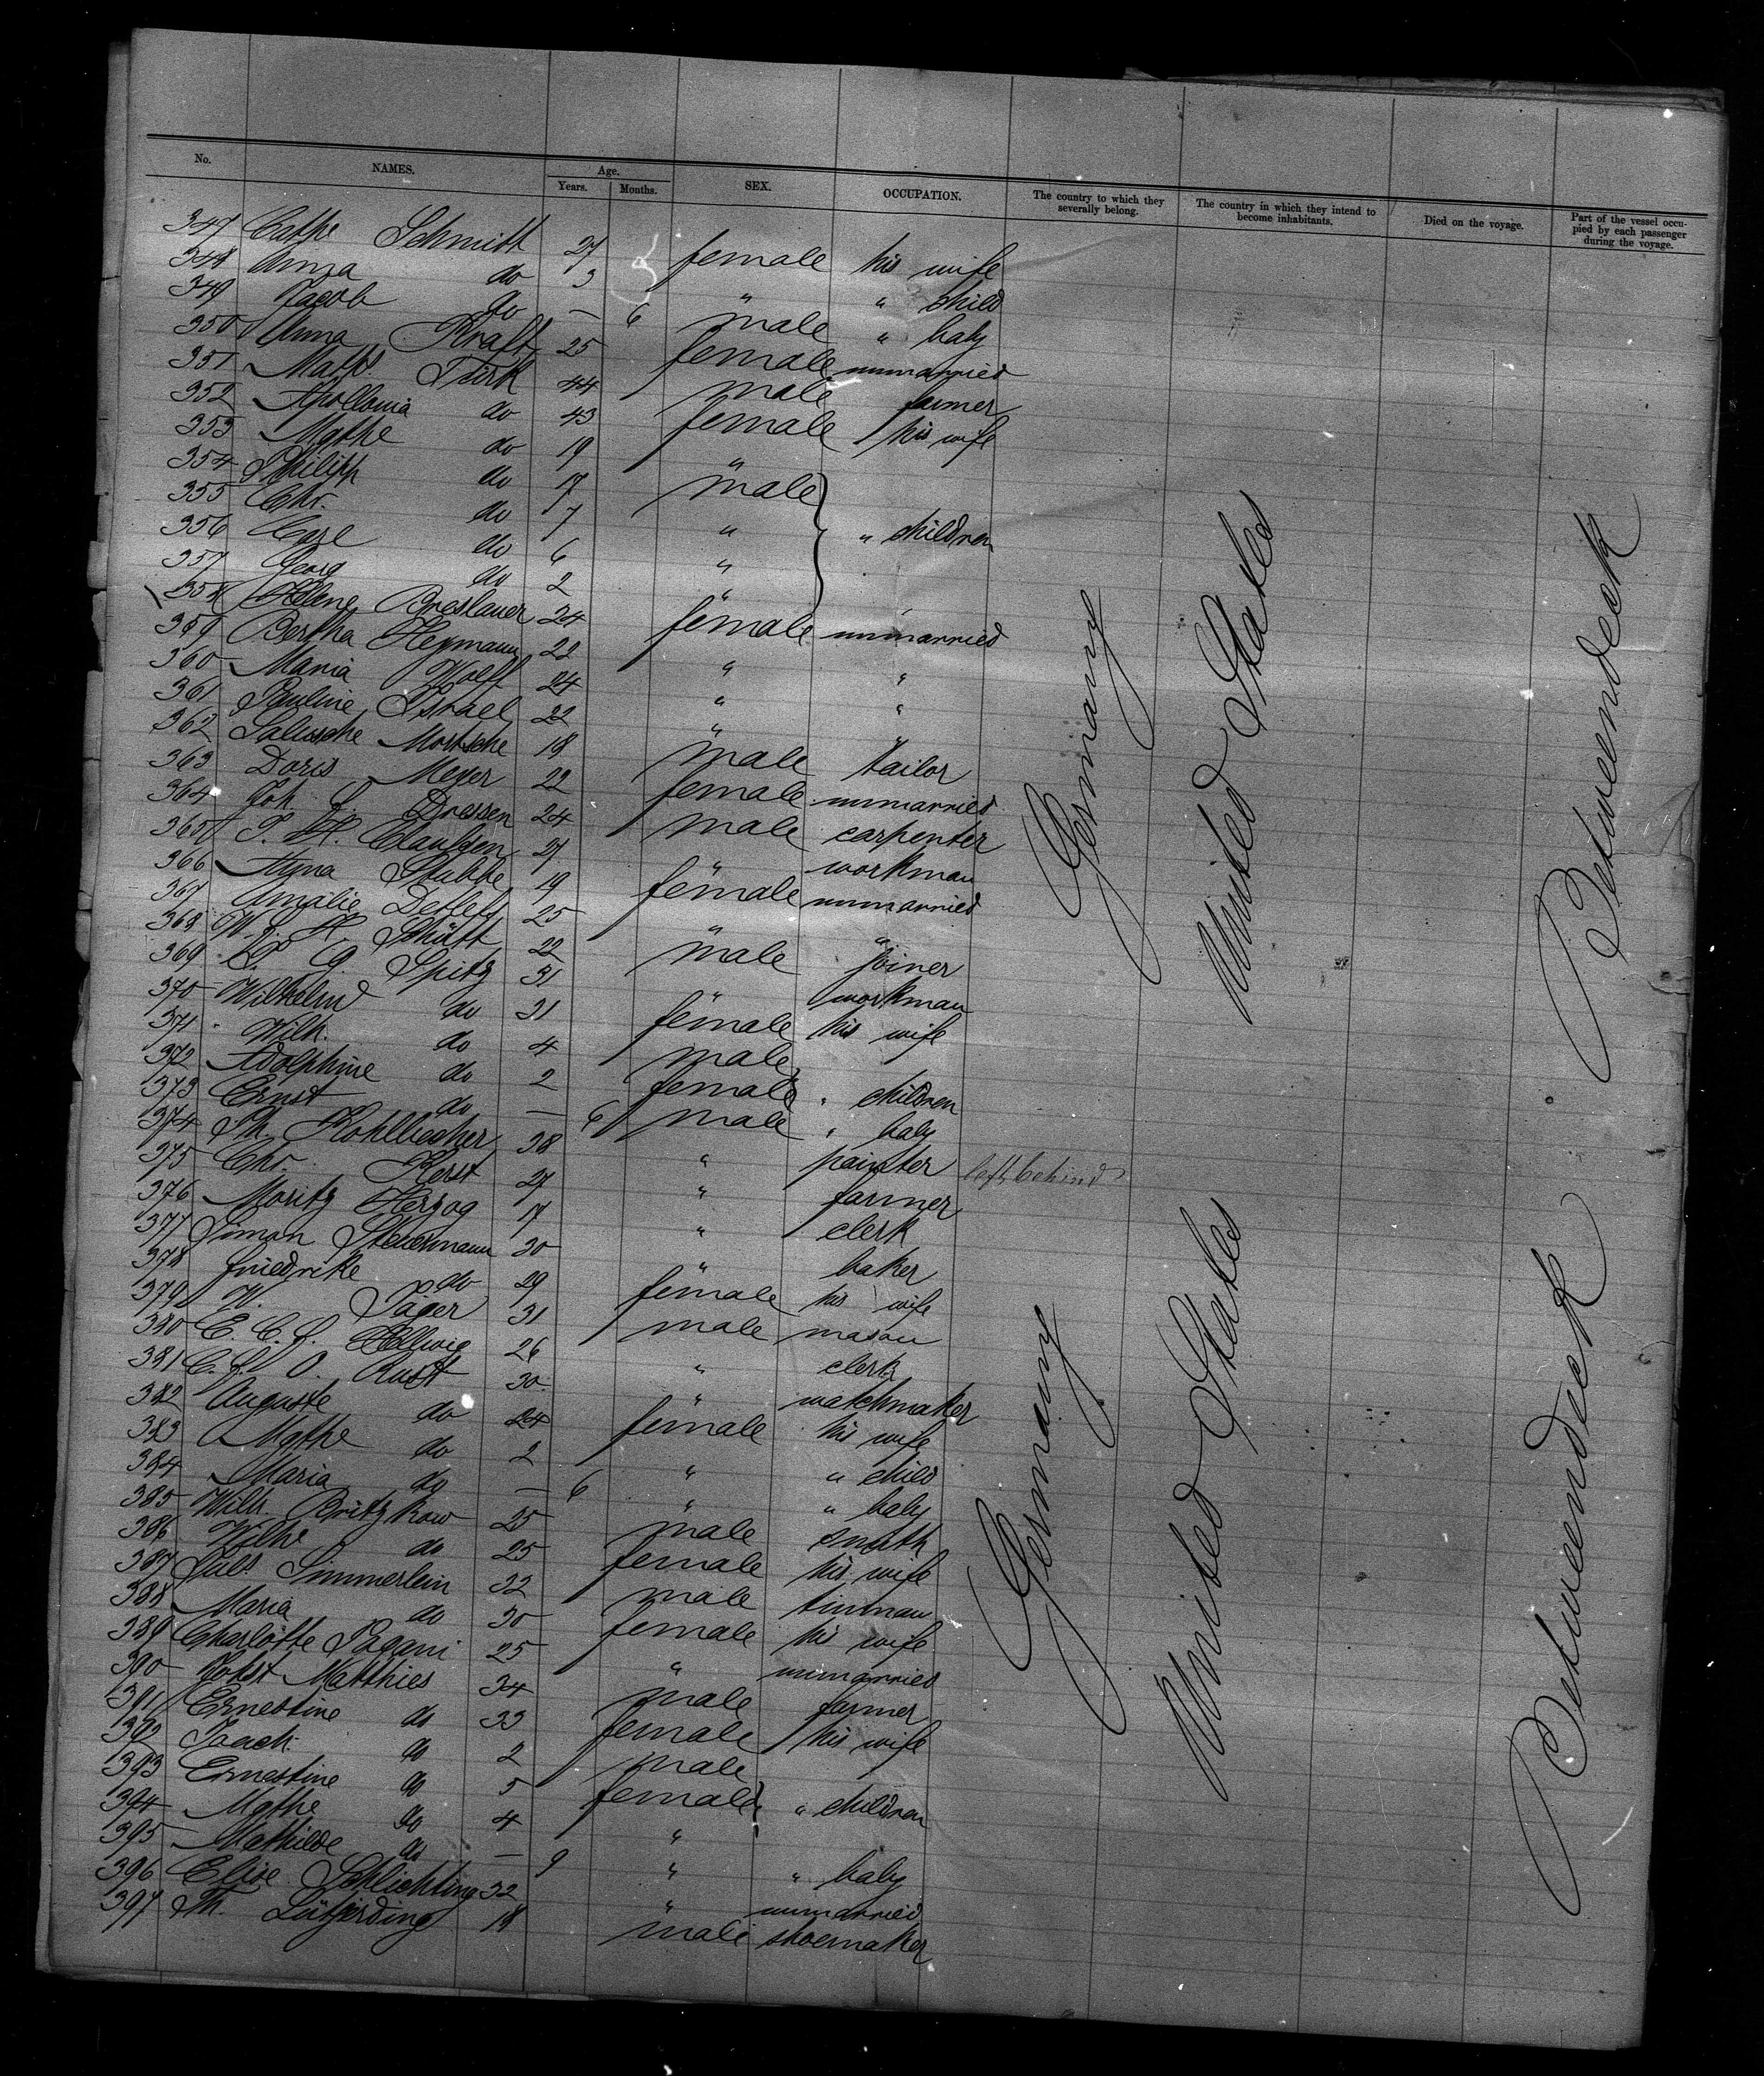 No. NAMES. Age. Years. Months. SEX. OCCUPATION. The country to which they severally belong. The country in which they intend to become inhabitants. Died on the voyage. Part of the vessel occupied by each passenger during the voyage.
347 Cathe Schmitt 27 female his wife
348 Anna do 3 " " child
349 Jacob do — 6 male " baby
350 Anna Kraft 25 female unmarried
351 Math. Türk 44 male farmer
352 Apollonia do 43 female his wife
353 Mgthe do 19 "
354 Philipp do 17 male
355 Chr. do 7 " " children
356 Carl do 6 "
357 Georg do 2 "
358 Helene Breslauer 24 female unmarried
359 Bertha Heymann 22 " "
360 Maria Wolff 24 " "
361 Pauline Israel 22 " "
362 Salusche Mortsche 18 male tailor
363 Doris Meyer 22 female unmarried
364 Joh. F. Dressen 24 male carpenter
365 T. H. Claussen 27 " workman
366 Anna Stubbe 19 female unmarried
367 Amalie Detlef 25 " "
368 W. J. H. Schütt 22 male joiner
369 G. Spitz 31 " workman
370 Wilhelmd do 31 female his wife
371 Wilh. do 4 male
372 Adolphine do 2 female " children
373 Ernst do — 6 male " baby
374 Ph. Kohlbecher 38 " painter left behind
375 Chr. Kerst 27 " farmer
376 Moritz Herzog 17 " clerk
377 Simon Steuermann 30 " baker
378 Friedrike do 29 female his wife
379 W. Jäger 31 male mason
380 E. C. F. Hellwig 26 " clerk
381 C. F. O. Rust 30 " watchmaker
382 Auguste do 24 female his wife
383 Mgthe do 2 " " child
384 Maria do — 6 " " baby
385 Wilh. Britzkow 25 male smith
386 Wilhe do 25 female his wife
387 Seb. Simmerlein 32 male tinman
388 Maria do 30 female his wife
389 Charlotte Pagani 25 " unmarried
390 Jobst Matthies 34 male farmer
391 Ernestine do 33 female his wife
392 Joach. do 2 male
393 Ernestine do 5 female " children
394 Mgthe do 4 "
395 Mathilde do — 9 " " baby
396 Elise Schlichting 32 " unmarried
397 Th. Lütjerding 18 male shoemaker
Germany
United States
Betweendeck
Germany
United States
Betweendeck